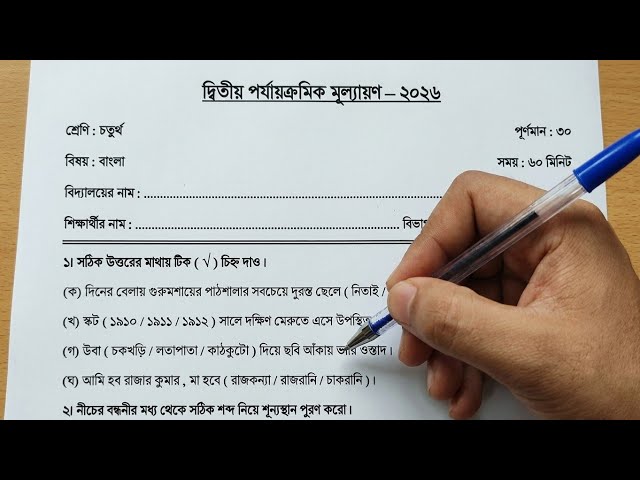 দ্বিতীয় পর্যায়ক্রমিক মূল্যায়ণ – ২০২৬
শ্রেণি : চতুর্থ পূর্ণমান : ৩০
বিষয় : বাংলা সময় : ৬০ মিনিট
বিদ্যালয়ের নাম :
শিক্ষার্থীর নাম : বিভা
১। সঠিক উত্তরের মাথায় টিক ( √ ) চিহ্ন দাও।
(ক) দিনের বেলায় গুরুমশায়ের পাঠশালার সবচেয়ে দুরন্ত ছেলে ( নিতাই /
(খ) স্কট ( ১৯১০ / ১৯১১ / ১৯১২ ) সালে দক্ষিণ মেরুতে এসে উপস্থিত
(গ) উবা ( চকখড়ি / লতাপাতা / কাঠকুটো ) দিয়ে ছবি আঁকায় ভারি ওস্তাদ।
(ঘ) আমি হব রাজার কুমার , মা হবে ( রাজকন্যা / রাজরানি / চাকরানি )।
২। নীচের বন্ধনীর মধ্য থেকে সঠিক শব্দ নিয়ে শূন্যস্থান পুরণ করো।